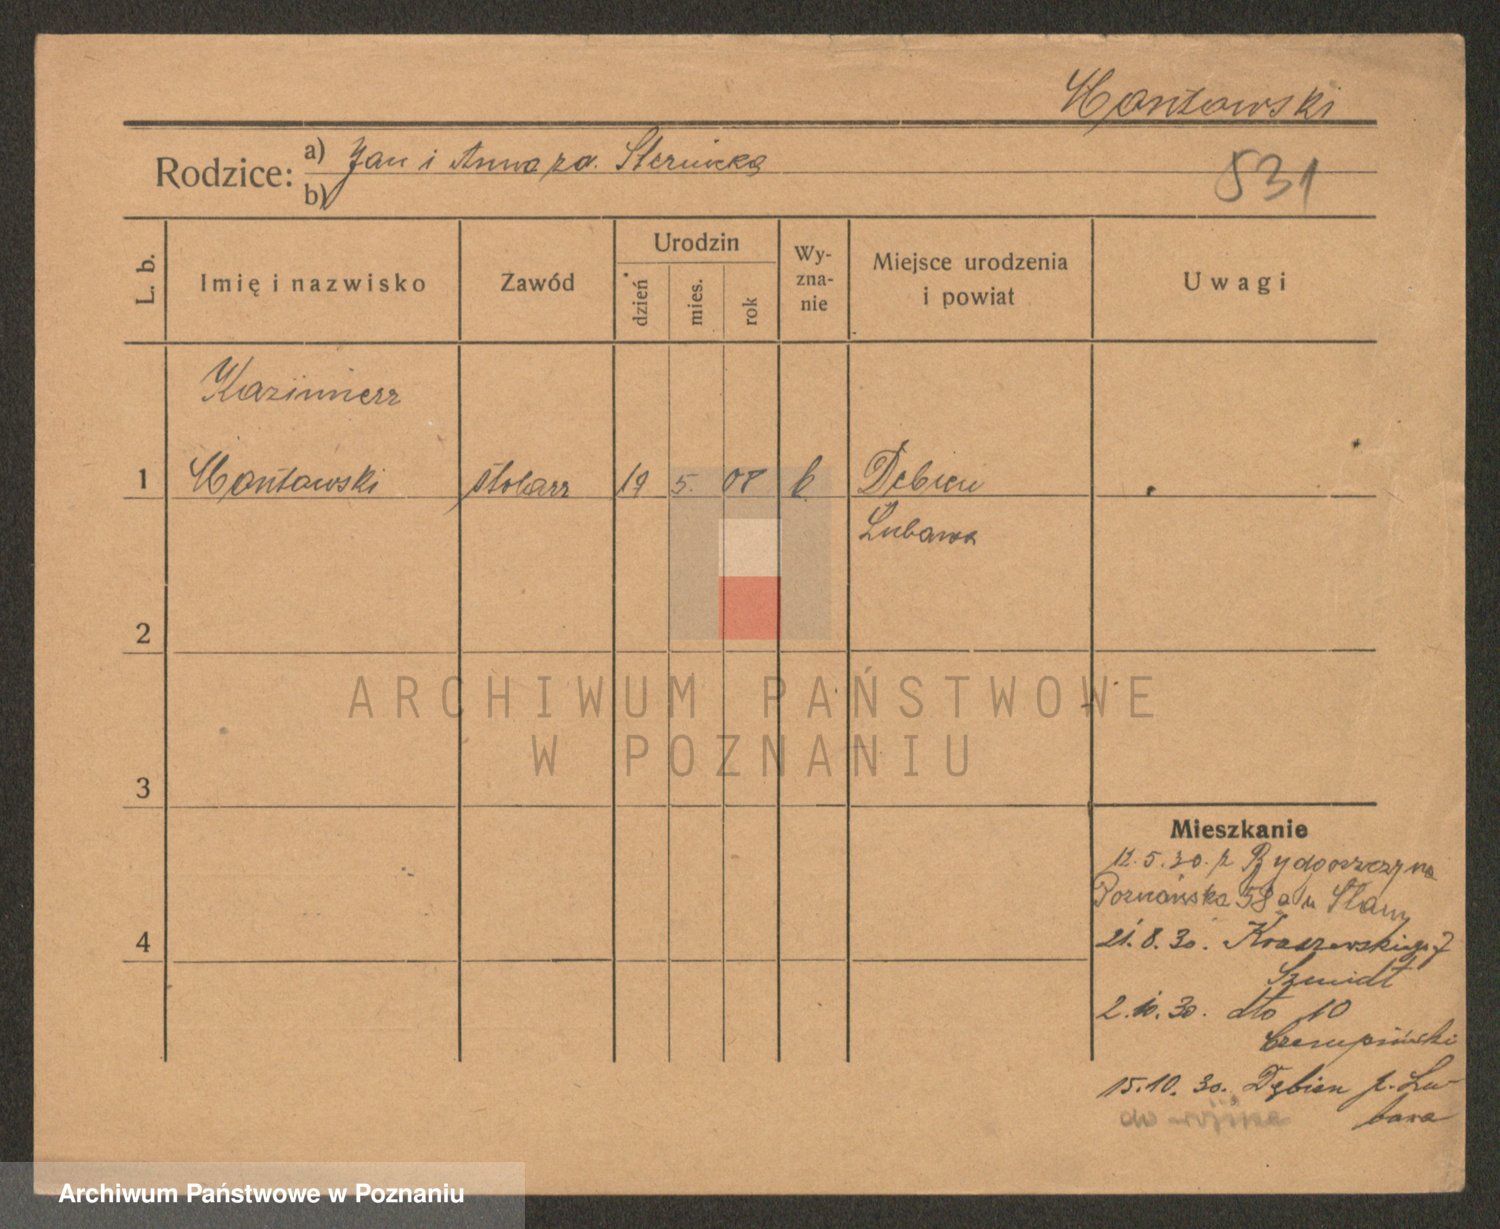 Montowski
Rodzice: a) Jan i Anna zd.
b)
531
L. b.
Imię i nazwisko
Zawód
Urodzin
dzień
mies.
rok
Wy-
zna-
nie
Miejsce urodzenia
i powiat
Uwagi
Kazimierz
1 Montowski stolarz 19 5. 08 k Dębień
Lubawa
2
3
4
ARCHIWUM PAŃSTWOWE
W POZNANIU
Mieszkanie
12.5.30. z Bydgoszczy na
Poznańska 58a u
21.8.30. Kraszewskiego 7
Szmidt
2.10.30. dto 10
Czempiński
15.10.30. Dębień p. Lu-
bawa
Archiwum Państwowe w Poznaniu